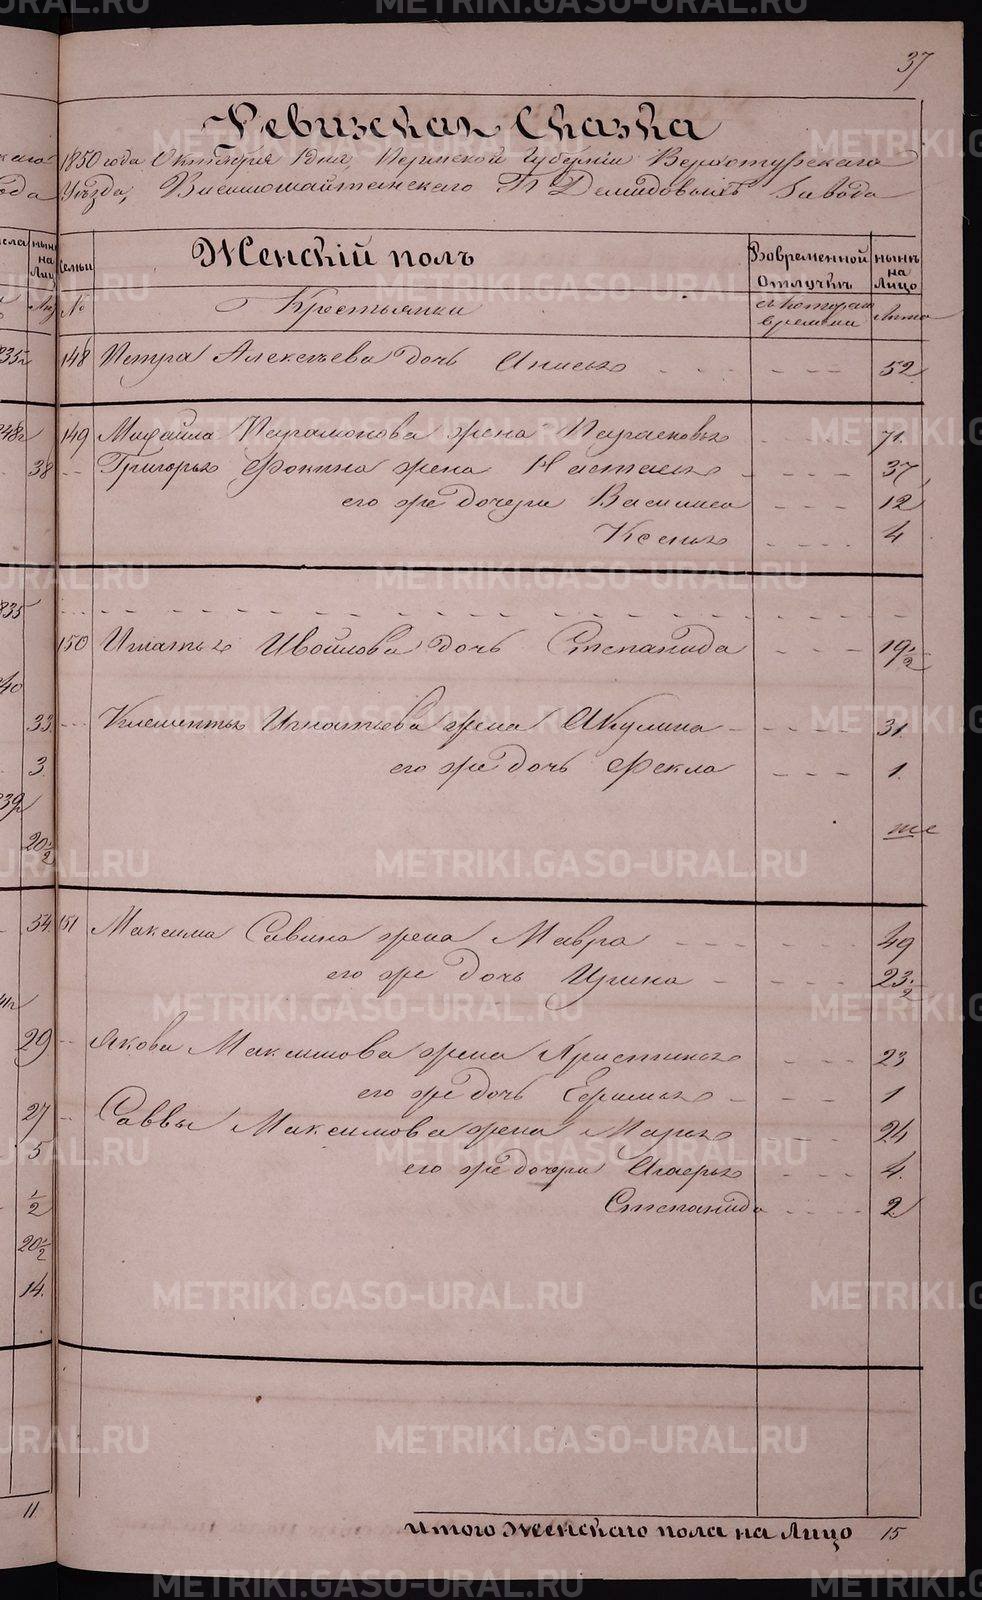 37
Ревизская Сказка
1850 года Октября 1 дня, Пермской Губерніи Верхотурскаго
Уѣзда, Висимошайтанскаго Гг. Демидовыхъ Завода
Женскій полъ
Вовременной Отлучкѣ
нынѣ на Лицо
Семьи
№
Крестьянки
съ котораго времени
Лѣта
148 Петра Алексѣева дочь Анисья 52
149 Михайла Парамонова жена Парасковья 71.
Григорья Фокина жена Настасья 37
его же дочери Василиса 12
Ксенья 4
150 Игнатья Ивойлова дочь Степанида 19 1/2
Клементья Игнатьева жена Акулина 31.
его же дочь Фекла 1.
151 Максима Савина жена Мавра 49
его же дочь Ирина 23 1/2
Якова Максимова жена Христинья 23
его же дочь 1
Саввы Максимова жена Марья 24
его же дочери 4.
Степанида 2
итого женскаго пола на Лицо 15
38
33
3.
20 1/2
34
29
27
5
1/2
20 1/2
14.
11
METRIKI.GASO-URAL.RU